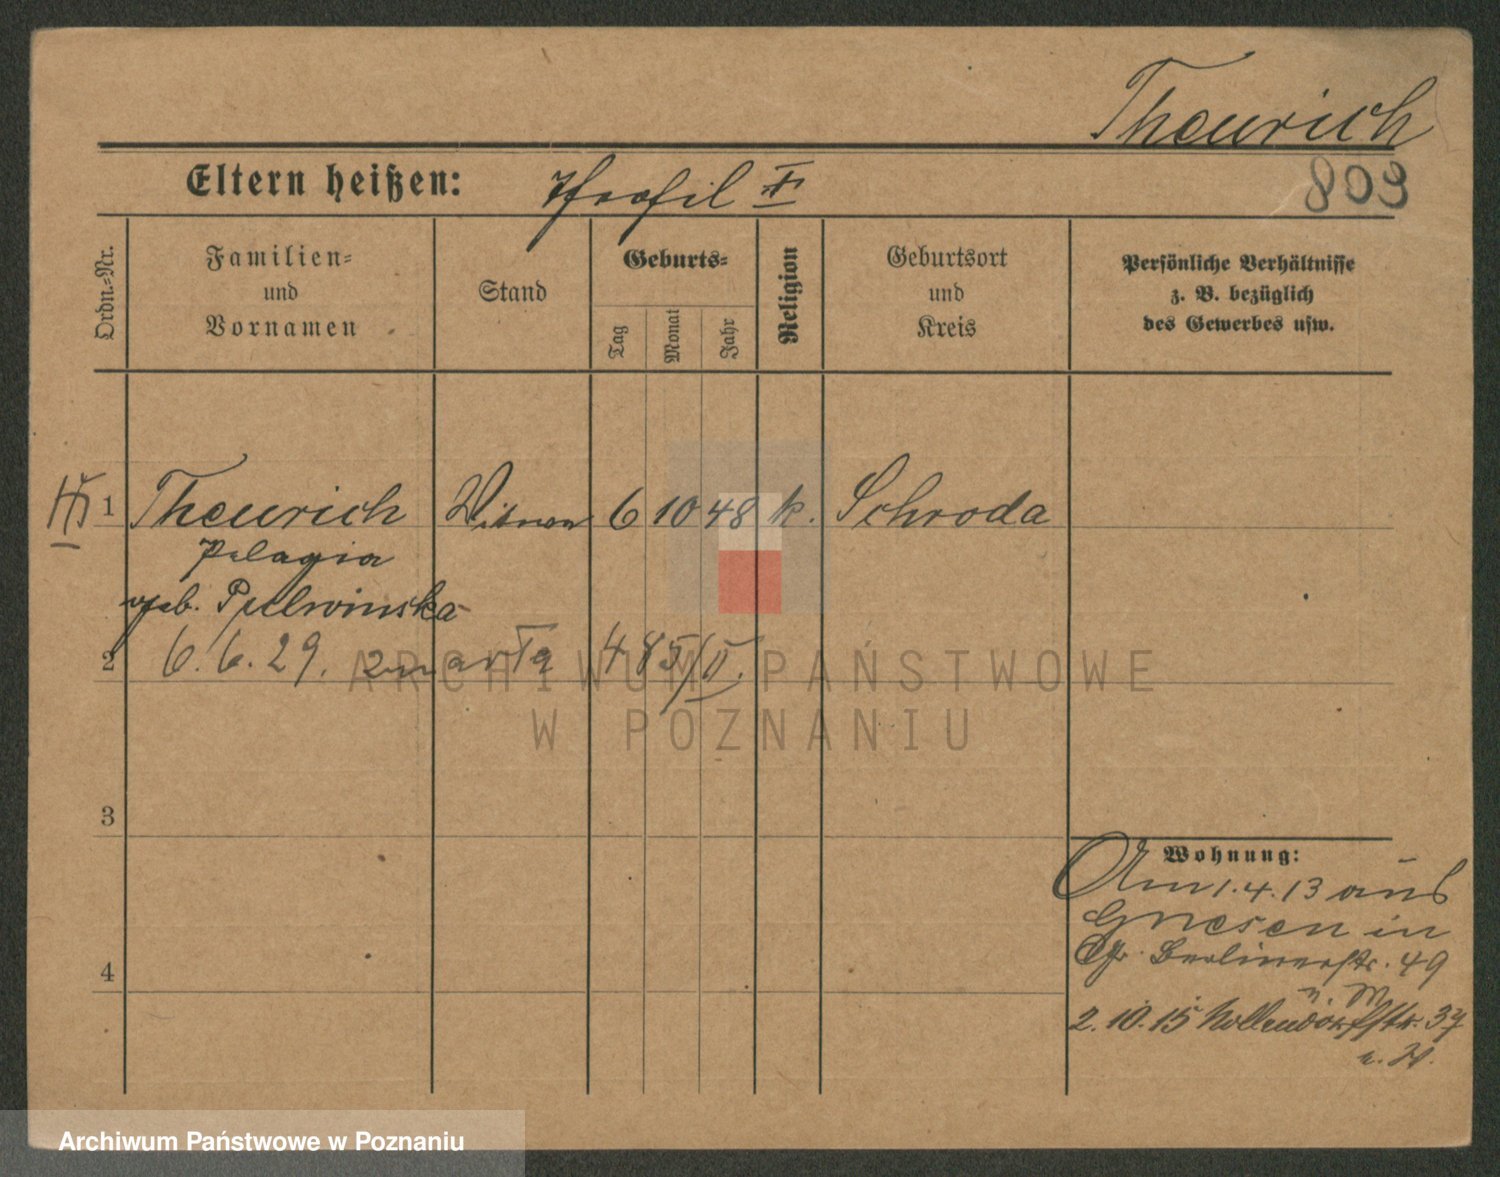 Theurich
Eltern heißen: Theofil †
803
Ordn.-Nr.
Familien-
und
Vornamen
Stand
Geburts-
Tag
Monat
Jahr
Religion
Geburtsort
und
Kreis
Persönliche Verhältnisse
z. B. bezüglich
des Gewerbes usw.
1 Theurich Witwe 6 10 48 k. Schroda
Pelagia
geb.
2 6.6.29. zmarła 485/II.
ARCHIWUM PAŃSTWOWE
W POZNANIU
3
Wohnung:
Am 1.4.13 aus
Gnesen in
Berlinerstr. 49
4
2.10.15 Nollendorfstr. 37
Archiwum Państwowe w Poznaniu